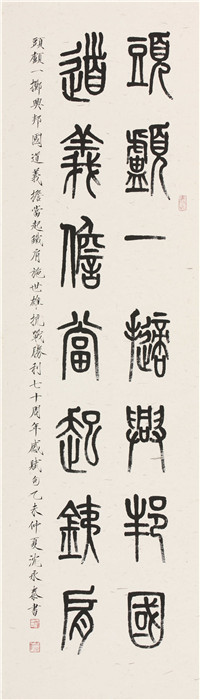 頭顱一擿興邦國
道義儋當起銕肩
頭顱一擲興邦國道義擔當起鐵肩施世雄抗戰勝利七十周年感賦句乙未仲夏沈永泰書